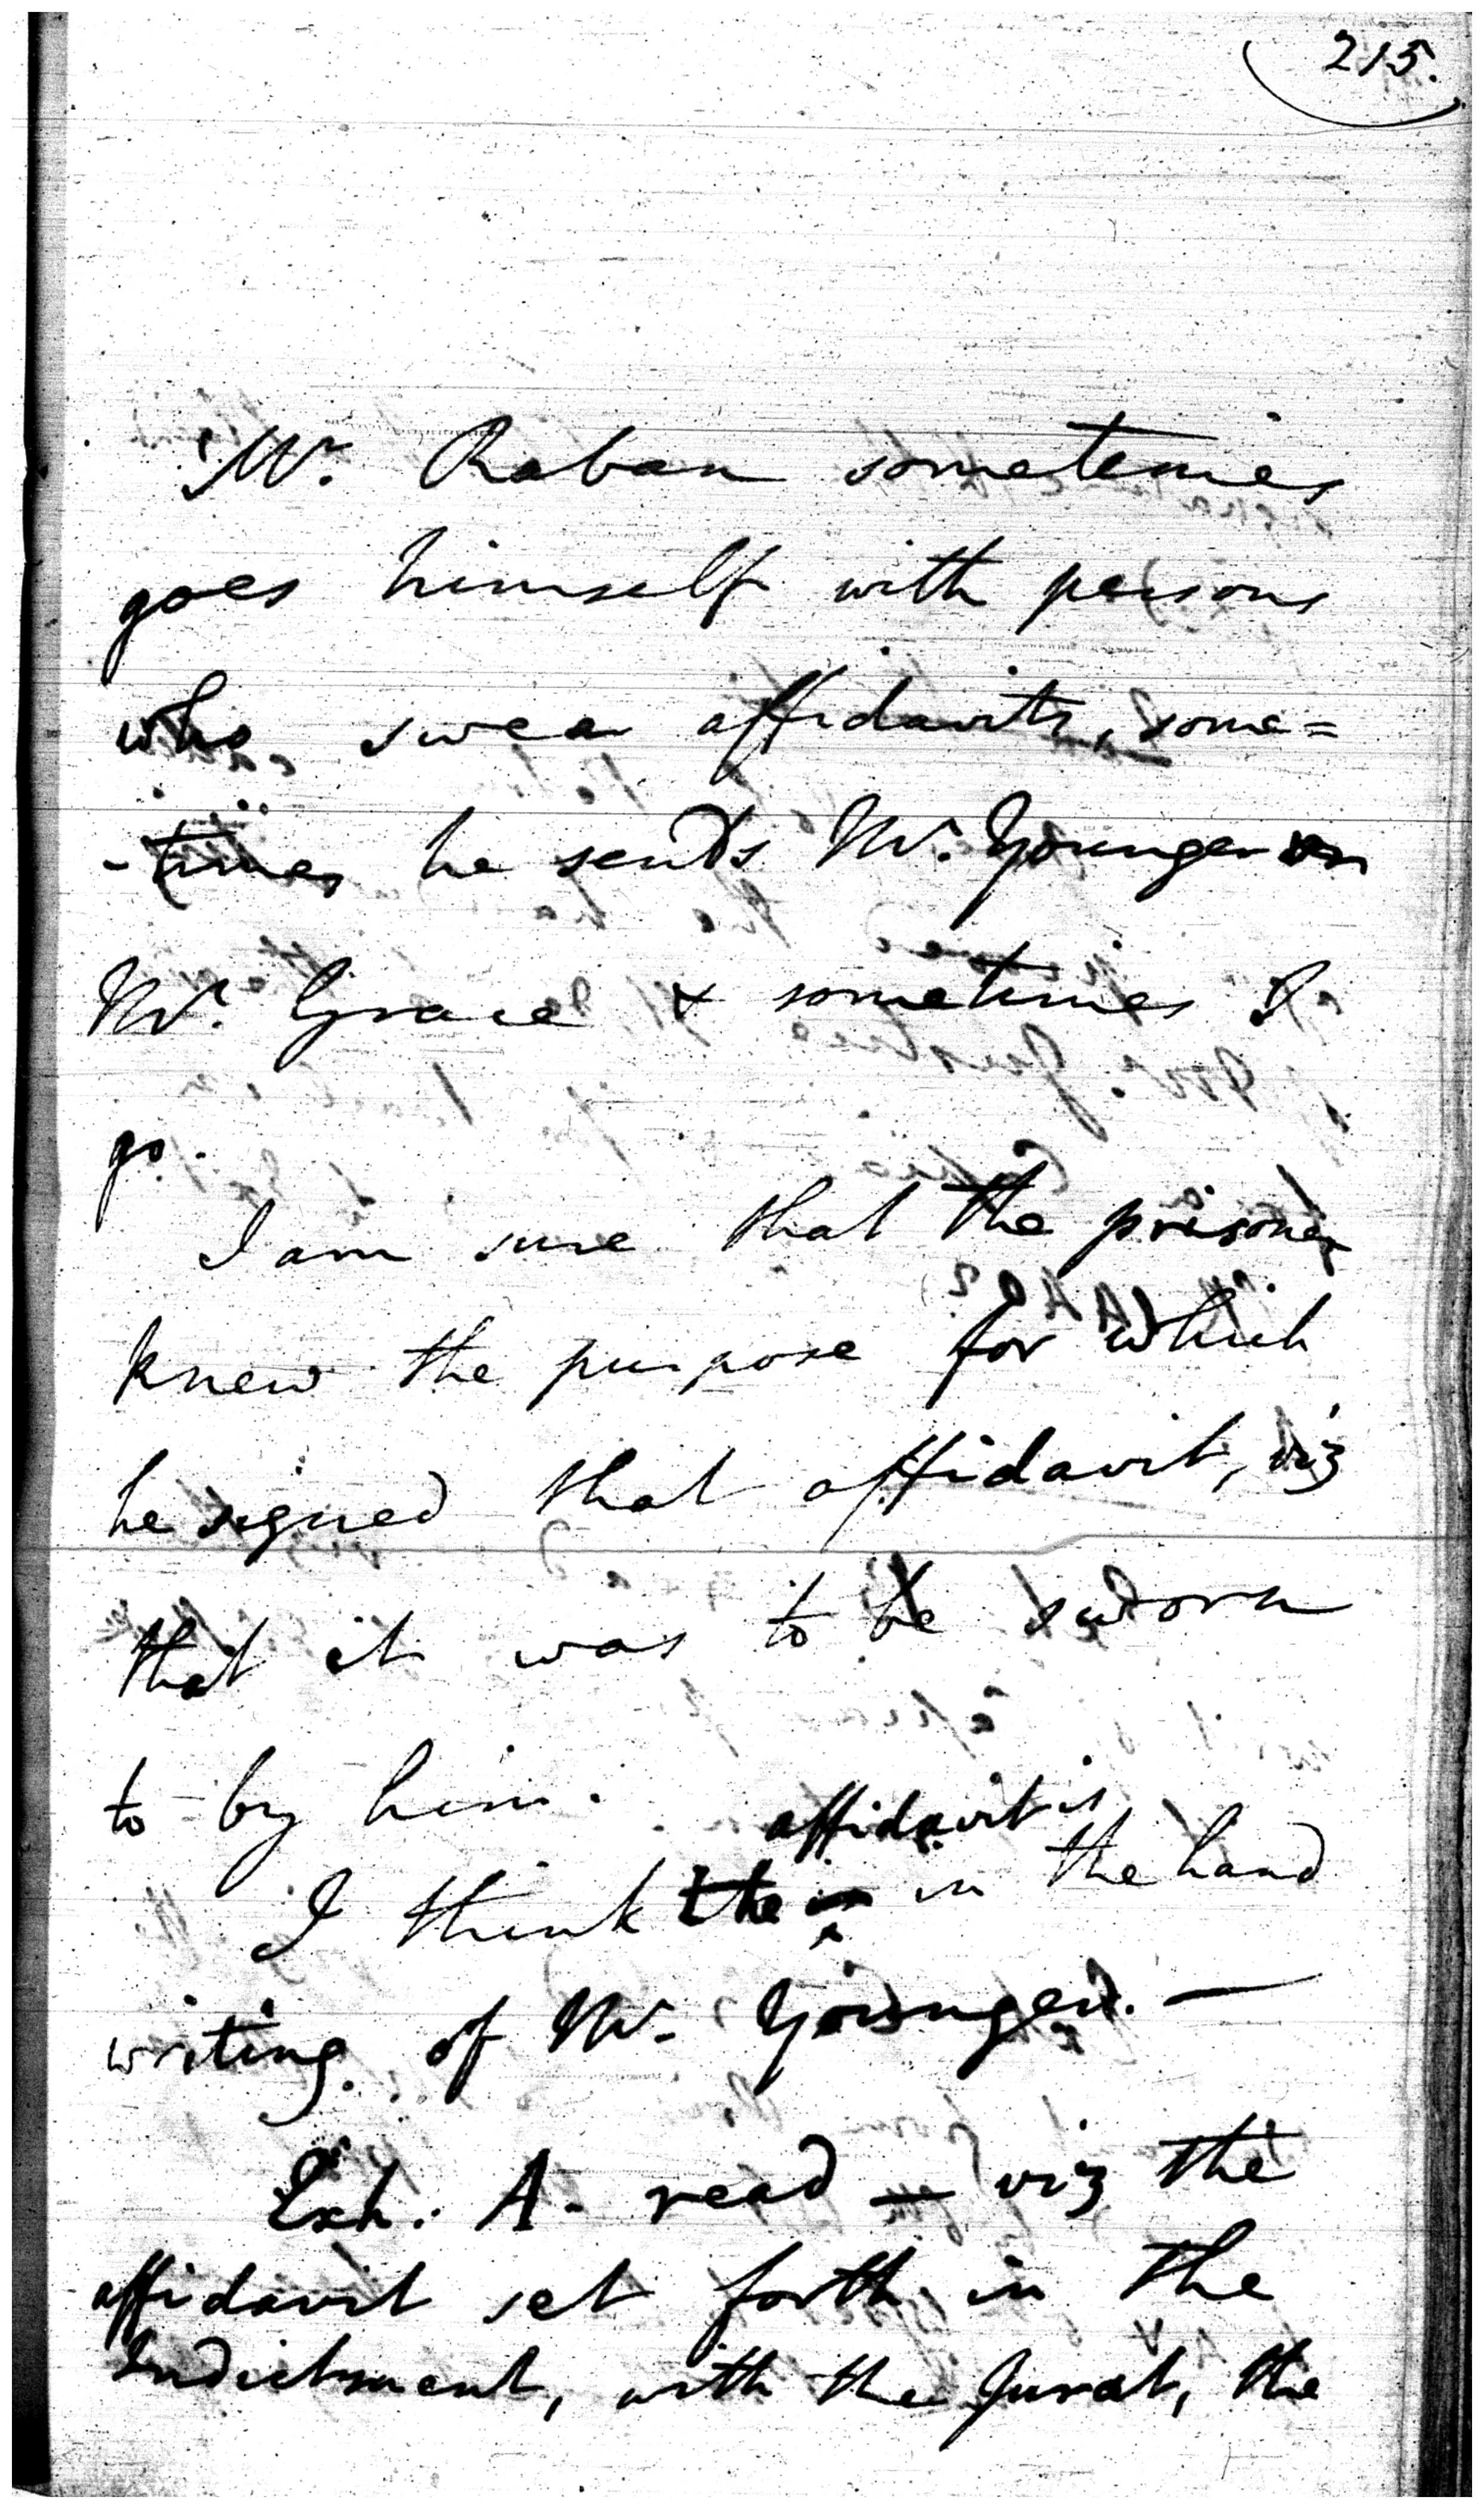 215.
Mr. Raban sometimes
goes himself with persons
who swear affidavits, some=
-times he sends Mr. Younger or
Mr. Grace & sometimes I
go.
I am sure that the prisoner
knew the purpose for which
he signed that affidavit, viz
that it was to be sworn
to by him.
affidavit is
I think the in the hand
writing of Mr. Younger. —
Exh. A. read — viz the
affidavit set forth in the
Indictment, with the Jurat, the